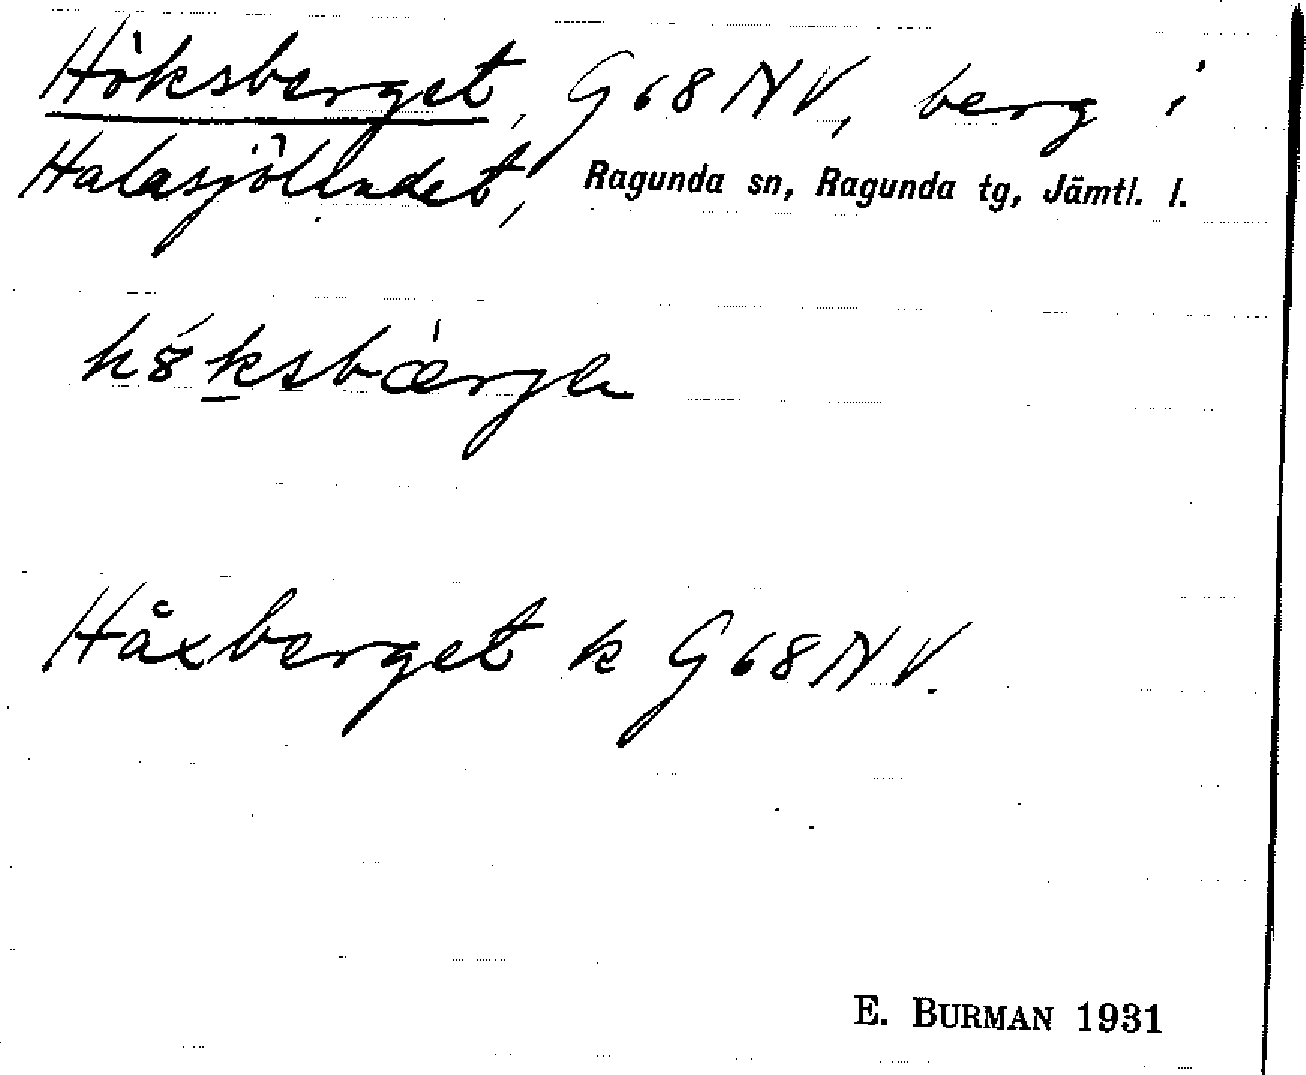 Höksberget, G68NV, berg i
Halasjölandet, Ragunda sn, Ragunda tg, Jämtl. l.
Håxberget k G68NV.
E. BURMAN 1931